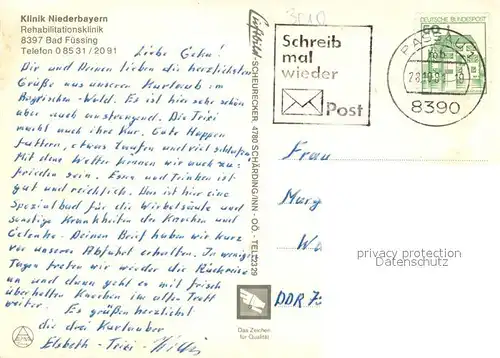 Klinik Niederbayern
Rehabilitationsklinik
8397 Bad Füssing
Telefon 0 85 31 / 20 91
Liebe Gehn!
Dir und Deinen lieben die herzlichsten
Grüße aus unserem Kurlaub im
Bayrischen-Wald. Es ist hier sehr schön
aber auch anstrengend. Die Trixi
macht auch ihre Kur. Gute Happen
futtern, etwas laufen und viel schlafen.
Mit dem Wetter können wir auch zu-
frieden sein. Essen und Trinken ist
gut und reichlich. Das ist hier eine
Spezialbad für die Wirbelsäule und
sonstige Krankheiten der Knochen und
Gelenke. Deinen Brief haben wir kurz
vor unserer Abfahrt erhalten. In wenigen
Tagen treten wir wieder die Rückreise
an und dann geht es mit frisch
überholten Knochen im alten Trott
weiter. Es grüßen herzlichst
die drei Kurlauber
Elsbeth - Trixi - Willi
Luftbild-SCHEURECKER, 4780 SCHÄRDING/INN - OÖ. - TEL. 23 29
Schreib
mal
wieder
Post
DEUTSCHE BUNDESPOST
60
PASSAU 1
8390
Frau
DDR 7
Das Zeichen
für Qualität
privacy protection
Datenschutz